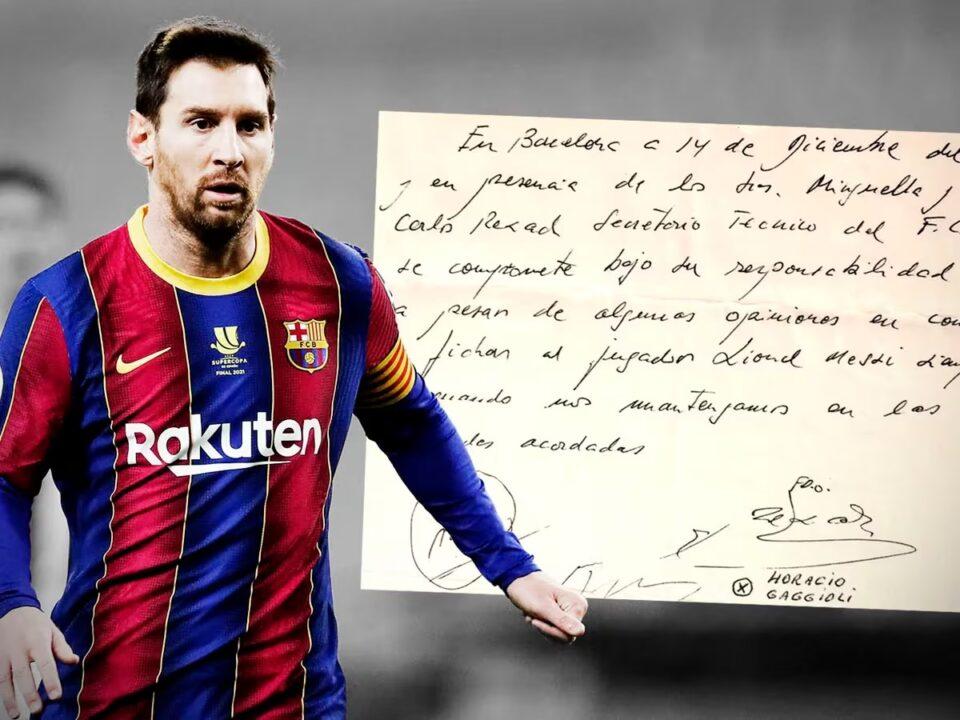 En Barcelona a 14 de Diciembre del
y en presencia de los Sres. Minguella y
Carlos Rexad Secretario Tecnico del F.C
se compromete bajo su responsabilidad
a pesar de algunas opiniones en con
fichar al jugador Lionel Messi
uando nos mantengamos en las
des acordadas
HORACIO
GAGGIOLI
SUPERCOPA
FINAL 2021
FCB
Rakuten